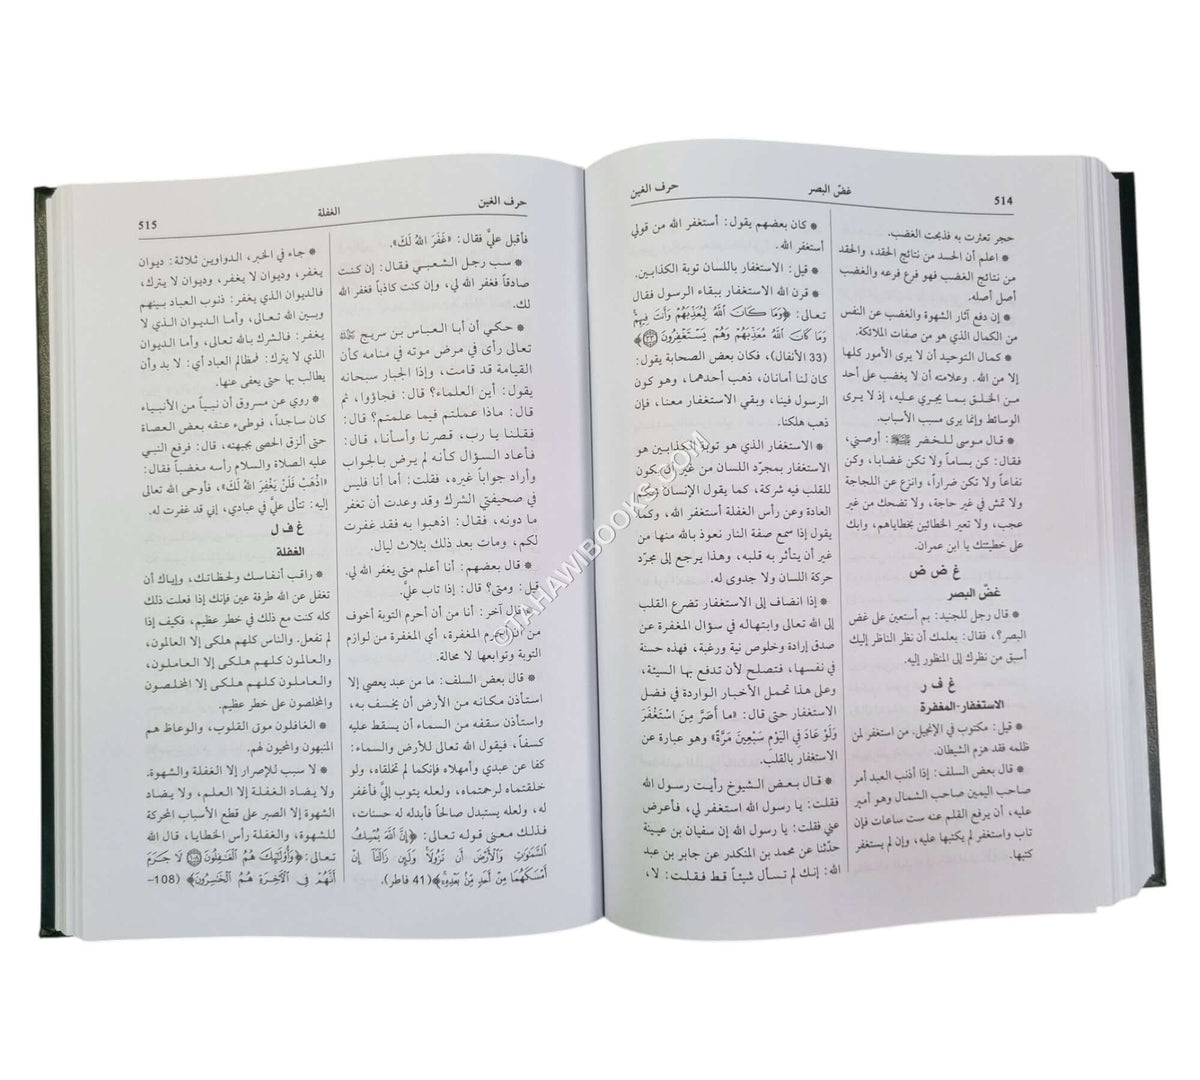 514
غضّ البصر
حرف الغين
حجر تعثرت به فذبحت الغضب.
* اعلم أن الحسد من نتائج الحقد، والحقد
من نتائج الغضب فهو فرع فرعه والغضب
أصل أصله.
* إن دفع آثار الشهوة والغضب عن النفس
من الكمال الذي هو من صفات الملائكة.
* كمال التوحيد أن لا يرى الأمور كلها
إلا من الله. وعلامته أن لا يغضب على أحد
من الخلق بما يجري عليه، إذ لا يرى
الوسائط وإنما يرى مسبب الأسباب.
* قال موسى للخضر ﷺ: أوصني،
فقال: كن بساماً ولا تكن غضابا، وكن
نفاعاً ولا تكن ضراراً، وانزع عن اللجاجة
ولا تمش في غير حاجة، ولا تضحك من غير
عجب، ولا تعير الخطائين بخطاياهم، وابك
على خطيئتك يا ابن عمران.
غ ض ض
غضّ البصر
* قال رجل للجنيد: بم أستعين على غض
البصر؟، فقال: بعلمك أن نظر الناظر إليك
أسبق من نظرك إلى المنظور إليه.
غ ف ر
الاستغفار-المغفرة
* قيل: مكتوب في الإنجيل. من استغفر لمن
ظلمه فقد هزم الشيطان.
* قال بعض السلف: إذا أذنب العبد أمر
صاحب اليمين صاحب الشمال وهو أمير
عليه، أن يرفع القلم عنه ست ساعات فإن
تاب واستغفر لم يكتبها عليه، وإن لم يستغفر
كتبها.
* كان بعضهم يقول: أستغفر الله من قولي
أستغفر الله.
* قيل: الاستغفار باللسان توبة الكذابين.
* قرن الله الاستغفار ببقاء الرسول فقال
تعالى: ﴿وَمَا كَانَ ٱللَّهُ لِيُعَذِّبَهُمْ وَأَنتَ فِيهِمْ
وَمَا كَانَ ٱللَّهُ مُعَذِّبَهُمْ وَهُمْ يَسْتَغْفِرُونَ ٣٣﴾
(33 الأنفال)، فكان بعض الصحابة يقول:
كان لنا أمانان، ذهب أحدهما، وهو كون
الرسول فينا، وبقي الاستغفار معنا، فإن
ذهب هلكنا.
* الاستغفار الذي هو توبة الكذابين هو
الاستغفار بمجرّد اللسان من غير أن يكون
للقلب فيه شركة، كما يقول الإنسان بحكم
العادة وعن رأس الغفلة أستغفر الله، وكما
يقول إذا سمع صفة النار نعوذ بالله منها من
غير أن يتأثر به قلبه، وهذا يرجع إلى مجرّد
حركة اللسان ولا جدوى له.
* إذا انضاف إلى الاستغفار تضرع القلب
إلى الله تعالى وابتهاله في سؤال المغفرة عن
صدق إرادة وخلوص نية ورغبة، فهذه حسنة
في نفسها، فتصلح لأن تدفع بها السيئة،
وعلى هذا تحمل الأخبار الواردة في فضل
الاستغفار حتى قال: «ما أَصَرَّ مَنِ اسْتَغْفَرَ
وَلَوْ عَادَ فِي اليَوْمِ سَبْعِينَ مَرَّةً» وهو عبارة عن
الاستغفار بالقلب.
* قال بعض الشيوخ رأيت رسول الله
فقلت: يا رسول الله استغفر لي، فأعرض
عني فقلت: يا رسول الله إن سفيان بن عيينة
حدّثنا عن محمد بن المنكدر عن جابر بن عبد
الله: إنك لم تسأل شيئاً قط فقلت: لا،
حرف الغين
الغفلة
515
فأقبل عليَّ فقال: «غَفَرَ اللهُ لَكَ».
* سب رجل الشعبي فقال: إن كنت
صادقاً فغفر الله لي، وإن كنت كاذباً فغفر الله
لك.
* حكي أن أبا العباس بن سريج
تعالى رأى في مرض موته في منامه كأن
القيامة قد قامت، وإذا الجبار سبحانه
يقول: أين العلماء؟ قال: فجاؤوا، ثم
قال: ماذا عملتم فيما علمتم؟ قال:
فقلنا يا رب، قصرنا وأسأنا، قال:
فأعاد السؤال كأنه لم يرض بالجواب
وأراد جواباً غيره، فقلت: أما أنا فليس
في صحيفتي الشرك وقد وعدت أن تغفر
ما دونه، فقال: اذهبوا به فقد غفرت
لكم، ومات بعد ذلك بثلاث ليال.
* قال بعضهم: أنا أعلم متى يغفر الله لي.
قيل: ومتى؟ قال: إذا تاب عليَّ.
* قال آخر: أنا من أن أحرم التوبة أخوف
من أن أحرم المغفرة، أي المغفرة من لوازم
التوبة وتوابعها لا محالة.
* قال بعض السلف: ما من عبد يعصي إلا
استأذن مكانه من الأرض أن يخسف به،
واستأذن سقفه من السماء أن يسقط عليه
كسفاً، فيقول الله تعالى للأرض والسماء:
كفا عن عبدي وأمهلاه فإنكما لم تخلقاه، ولو
خلقتماه لرحمتماه، ولعله يتوب إليَّ فأغفر
له، ولعله يستبدل صالحاً فأبدله له حسنات،
فذلك معنى قوله تعالى: ﴿إِنَّ ٱللَّهَ يُمْسِكُ
ٱلسَّمَٰوَٰتِ وَٱلْأَرْضَ أَن تَزُولَا وَلَئِن زَالَتَآ إِنْ
أَمْسَكَهُمَا مِنْ أَحَدٍ مِّنۢ بَعْدِهِۦ﴾ (41 فاطر).
* جاء في الخبر، الدواوين ثلاثة: ديوان
يغفر، وديوان لا يغفر، وديوان لا يترك،
فالديوان الذي يغفر: ذنوب العباد بينهم
وبين الله تعالى، وأما الديوان الذي لا
يغفر: فالشرك بالله تعالى، وأما الديوان
الذي لا يترك: فمظالم العباد أي: لا بد وأن
يطالب بها حتى يعفى عنها.
* روي عن مسروق أن نبياً من الأنبياء
كان ساجداً، فوطىء عنقه بعض العصاة
حتى ألزق الحصى بجبهته، قال: فرفع النبي
عليه الصلاة والسلام رأسه مغضباً فقال:
«اذْهَبْ فَلَنْ يَغْفِرَ اللهُ لَكَ»، فأوحى الله تعالى
إليه: تتألى عليَّ في عبادي، إني قد غفرت له.
غ ف ل
الغفلة
* راقب أنفاسك ولحظاتك، وإياك أن
تغفل عن الله طرفة عين فإنك إذا فعلت ذلك
كله كنت مع ذلك في خطر عظيم، فكيف إذا
لم تفعل. والناس كلهم هلكى إلا العالمون،
والعالمون كلهم هلكى إلا العاملون،
والعاملون كلهم هلكى إلا المخلصون
والمخلصون على خطر عظيم.
* الغافلون موتى القلوب، والوعاظ هم
المنبهون والمحيون لهم.
* لا سبب للإصرار إلا الغفلة والشهوة.
ولا يضاد الغفلة إلا العلم، ولا يضاد
الشهوة إلا الصبر على قطع الأسباب المحركة
للشهوة، والغفلة رأس الخطايا، قال الله
تعالى: ﴿وَأُوْلَٰٓئِكَ هُمُ ٱلْغَٰفِلُونَ ١٠٨ لَا جَرَمَ
أَنَّهُمْ فِى ٱلْأَخِرَةِ هُمُ ٱلْخَٰسِرُونَ﴾ (108–
OTAHAWIBOOKS.COM